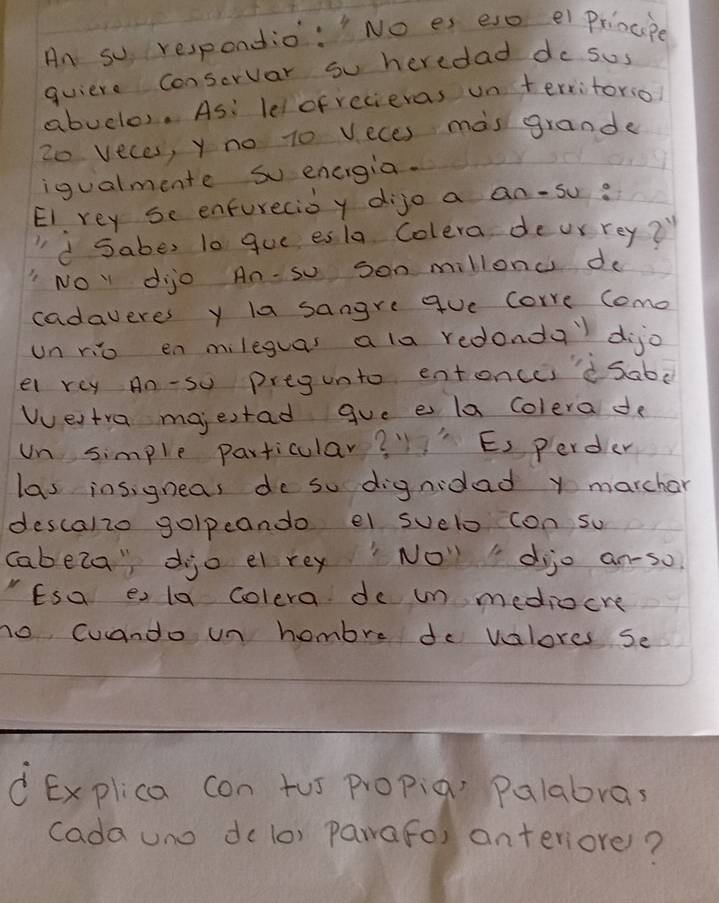 An su respondio: "No es eso el Principe
quiere conservar su heredad de sus
abuelos. Asi le ofrecieras un territorio
20 veces, y no 10 veces más grande
igualmente su energia.
El rey se enfurecio y dijo a an-su:
"¿ Sabes lo que es la Colera de un rey?"
"No" dijo An-su son millones de
cadaveres y la sangre que corre como
un rio en mileguas a la redonda" dijo
el rey An-su pregunto entonces "¿Sabe
Vuestra majestad que es la colera de
un simple particular?" "Es perder
las insigneas de su dignidad y marchar
descalzo golpeando el suelo con su
cabeza", dijo el rey "No" "dijo an-so.
"Esa es la colera de un mediocre
no cuando un hombre de valores se
¿Explica con tus propias Palabras
cada uno de los parrafos anteriores?